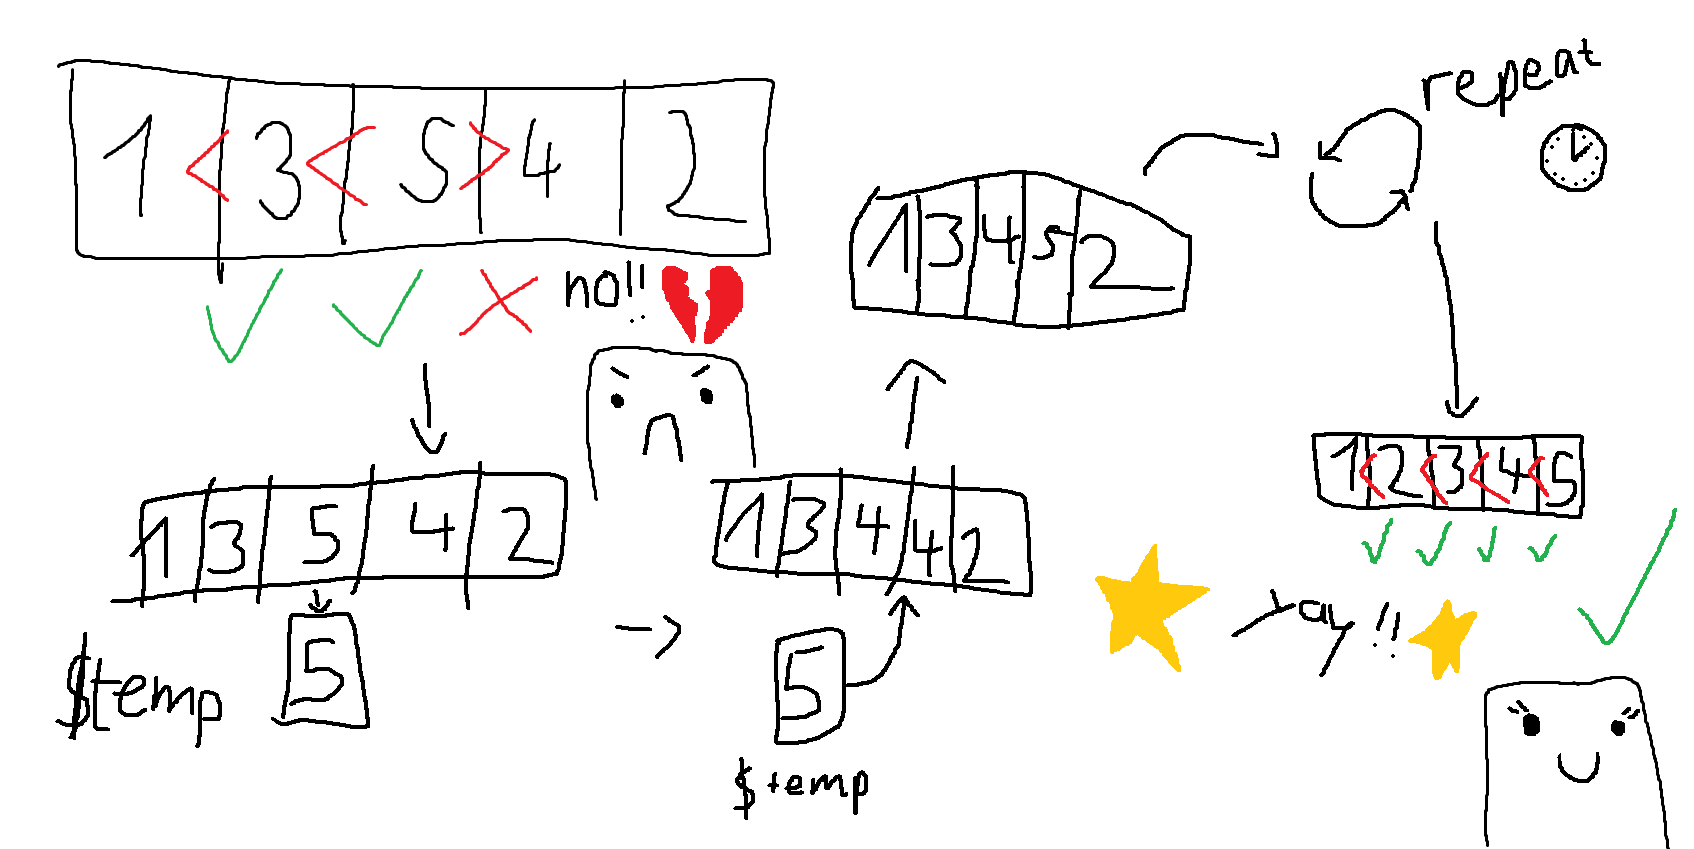 1 < 3 < 5 > 4 2
no!!
1 3 5 4 2
5
$temp
1 3 4 4 2
5
$temp
1 3 4 5 2
repeat
1 < 2 < 3 < 4 < 5
yay!!